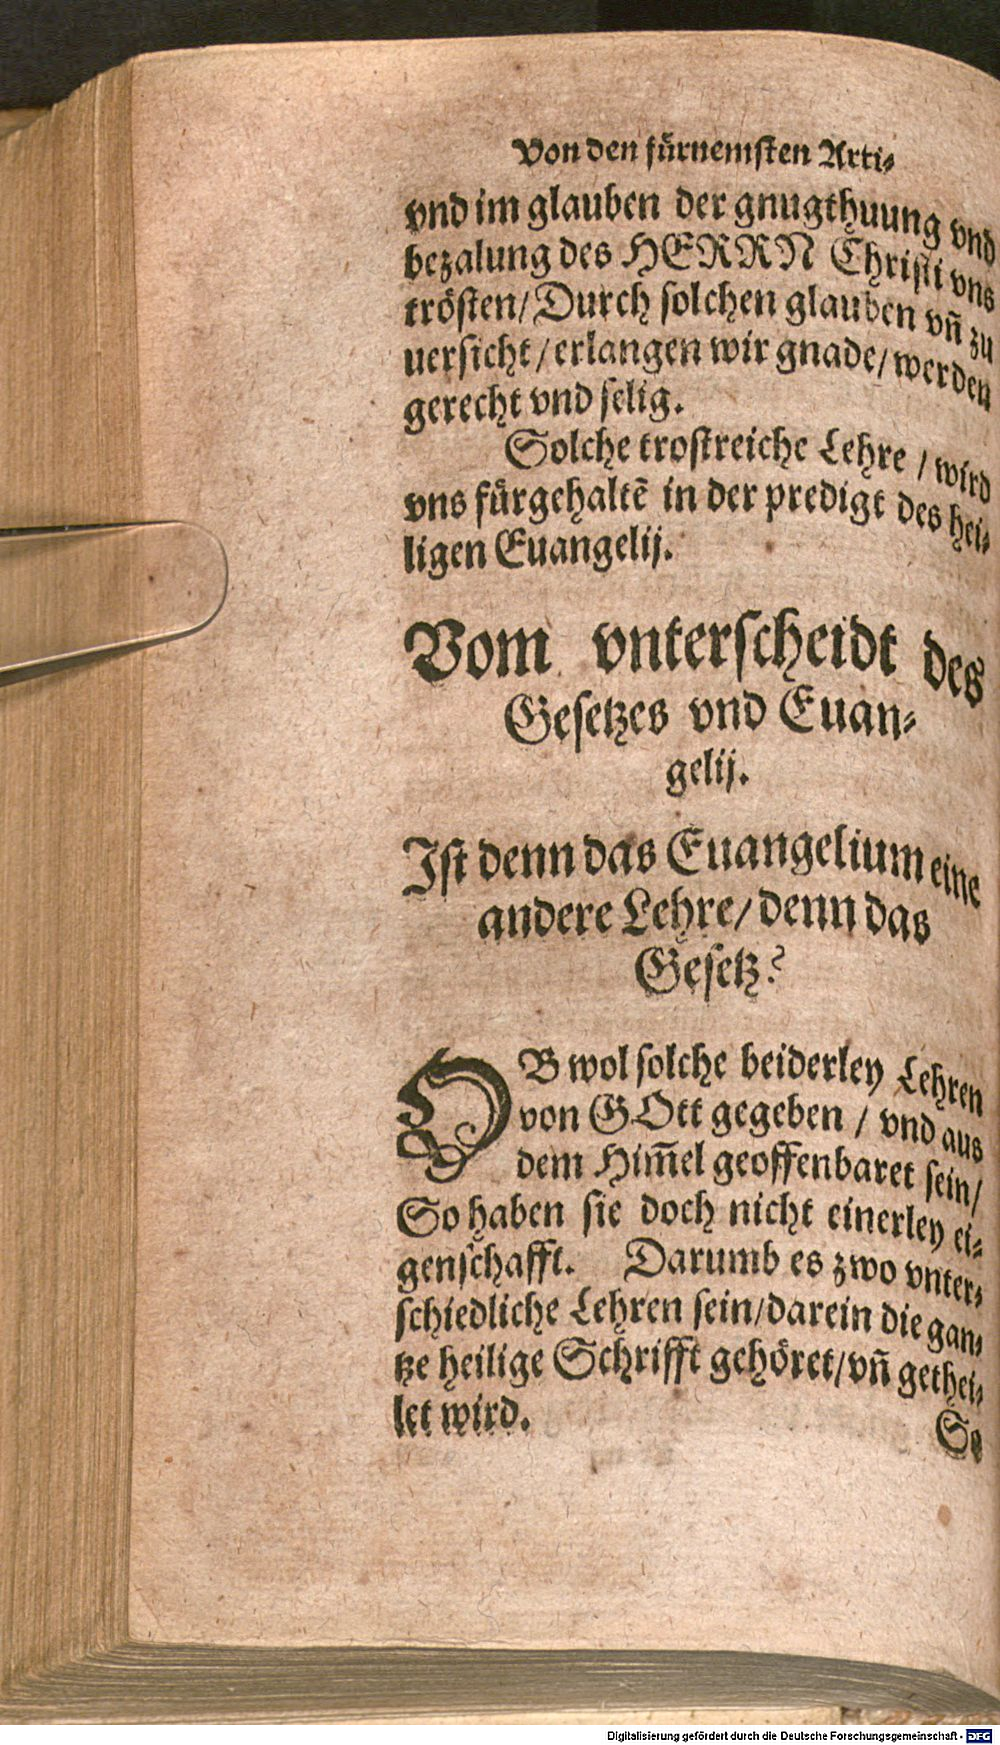 Von den fürnemsten Arti-
vnd im glauben der gnugthuung vnd
bezalung des HERRN Christi vns
trösten/ Durch solchen glauben vn̄ zu
uersicht/ erlangen wir gnade/ werden
gerecht vnd selig.
Solche trostreiche Lehre / wird
vns fürgehaltē in der predigt des hei-
ligen Euangelij.
Vom vnterscheidt des
Gesetzes vnd Euan-
gelij.
Ist denn das Euangelium eine
andere Lehre/ denn das
Gesetz?
OB wol solche beiderley Lehren
von GOtt gegeben / vnd aus
dem Him̄el geoffenbaret sein/
So haben sie doch nicht einerley ei-
genschafft. Darumb es zwo vnter-
schiedliche Lehren sein/ darein die gan-
tze heilige Schrifft gehöret/ vn̄ gethei-
let wird.
So
Digitalisierung gefördert durch die Deutsche Forschungsgemeinschaft - DFG